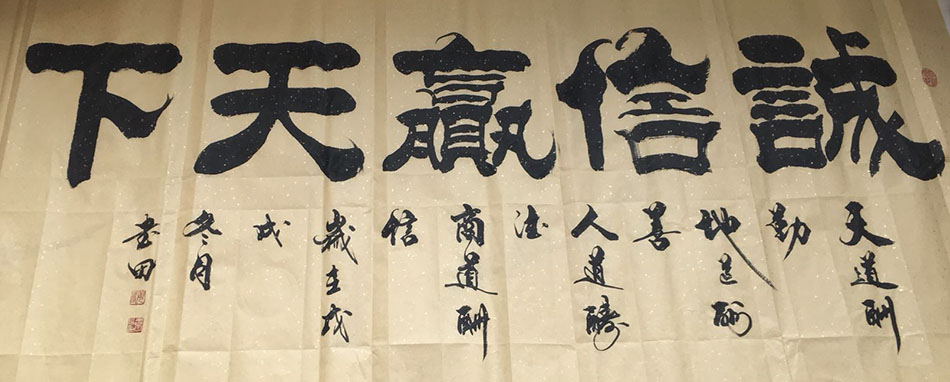 誠信贏天下
天道酬
勤
地道酬
善
人道醻
德
商道酬
信
歲在戊
戌
冬月
田